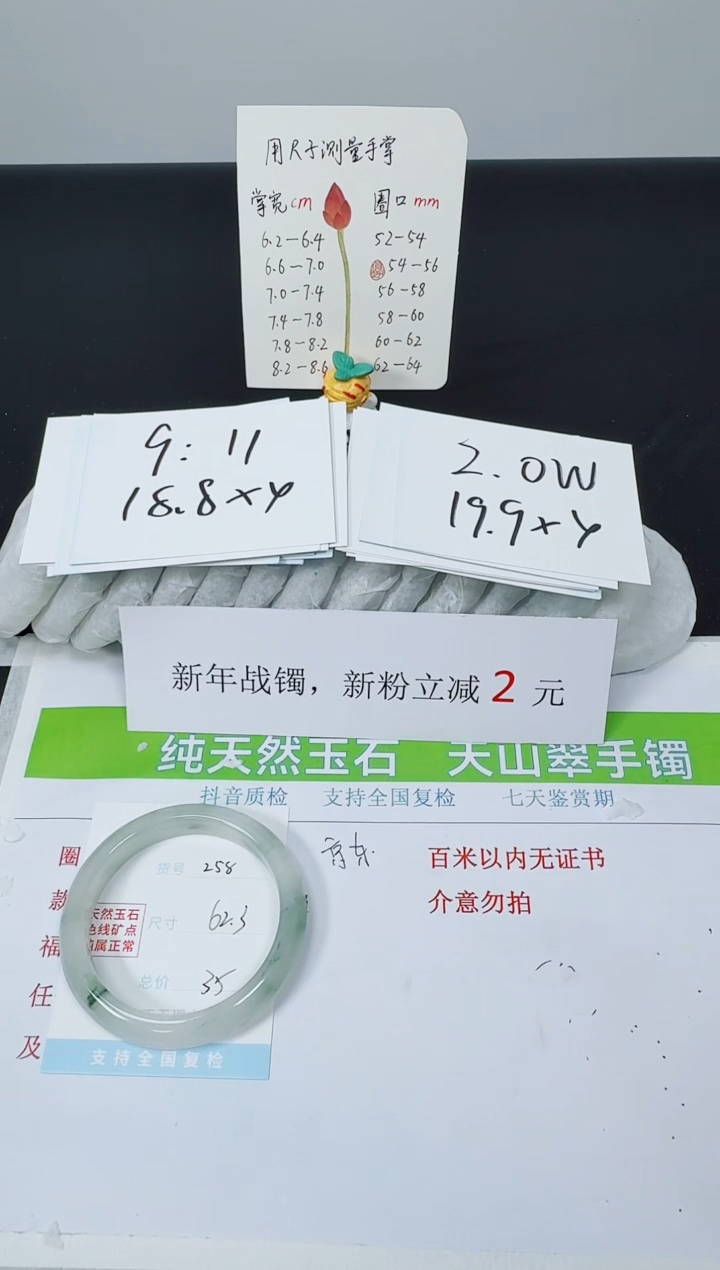 用尺子测量手掌
掌宽cm 圈口mm
6.2-6.4 52-54
6.6-7.0 54-56
7.0-7.4 56-58
7.4-7.8 58-60
7.8-8.2 60-62
8.2-8.6 62-64
9:11
18.8×Y
2.0W
19.9×Y
新年战镯，新粉立减2元
纯天然玉石 天山翠手镯
抖音质检 支持全国复检 七天鉴赏期
圈
款
福
任
及
货号 258
尺寸 62.3
总价 35
天然玉石
色线矿点
属正常
支持全国复检
百米以内无证书
介意勿拍